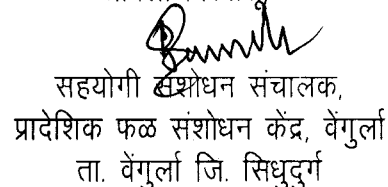 सहयोगी संशोधन संचालक,
प्रादेशिक फळ संशोधन केंद्र, वेंगुर्ला
ता. वेंगुर्ला जि. सिधुदुर्ग